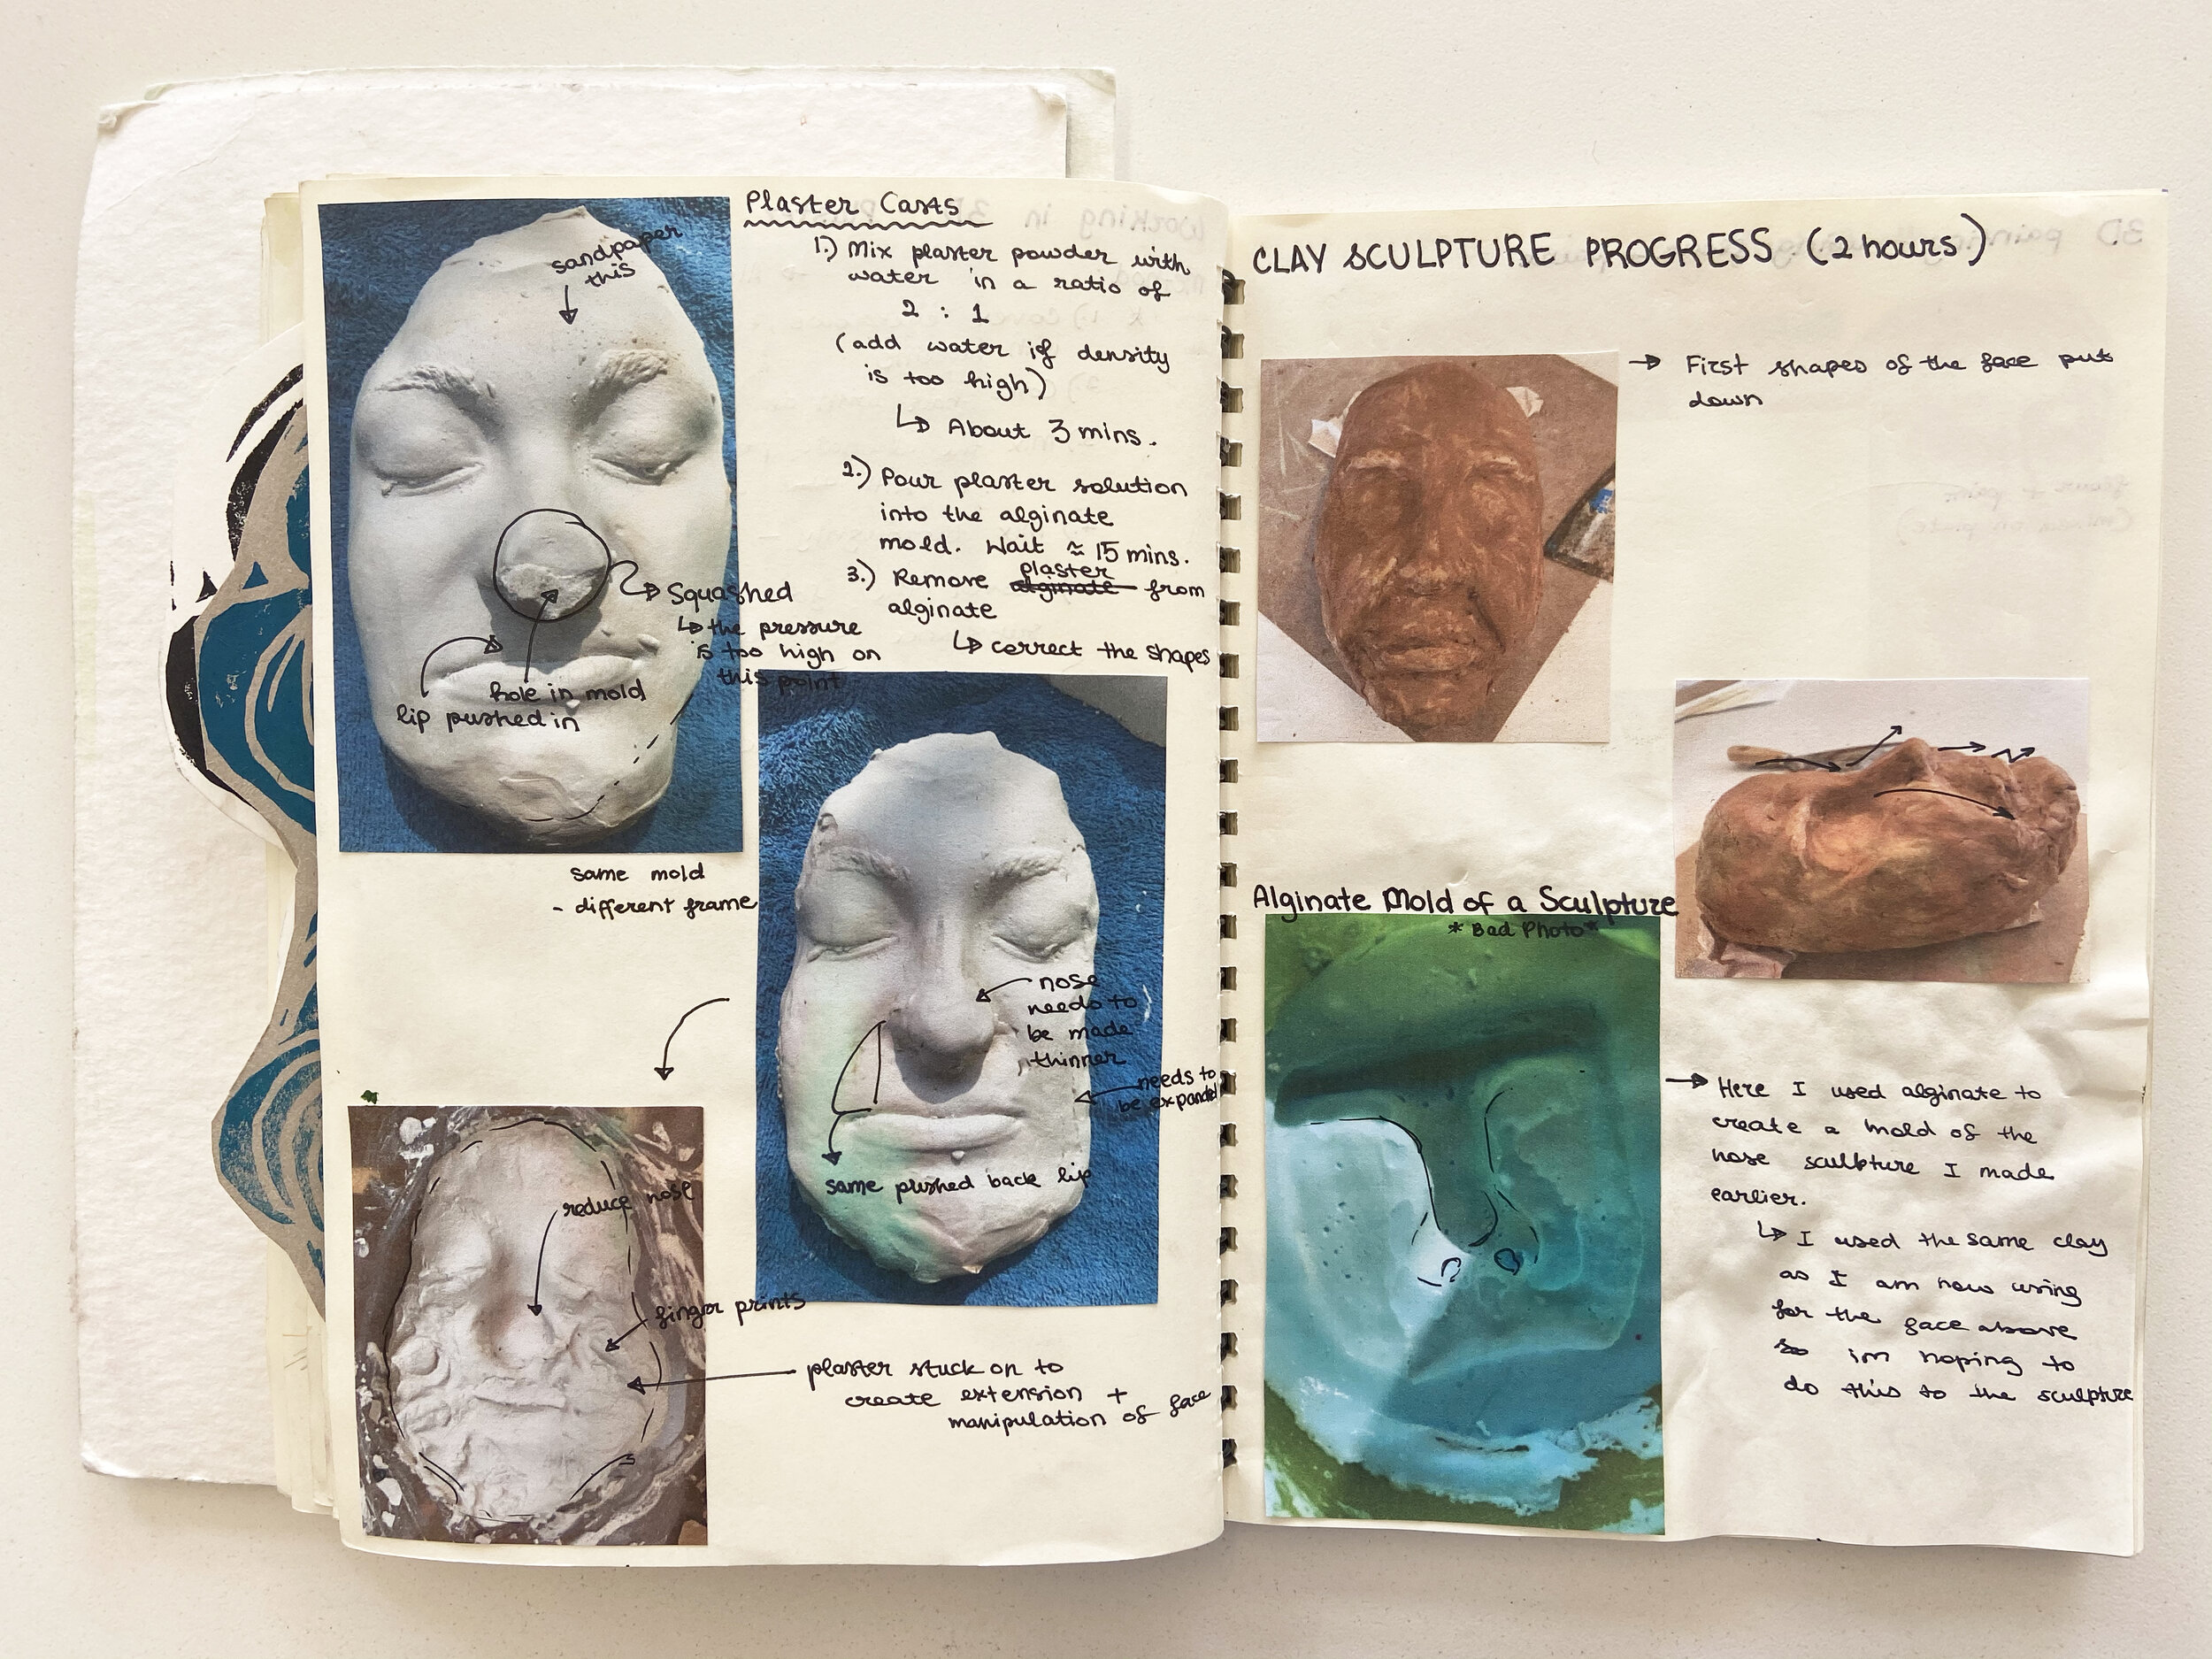 Plaster Casts
1.) Mix plaster powder with
water in a ratio of
2 : 1
(add water if density
is too high)
↳ About 3 mins.
2.) Pour plaster solution
into the alginate
mold. Wait ≈ 15 mins.
3.) Remove plaster alginate from
alginate
↳ correct the shapes
sandpaper
this
Squashed
↳ the pressure
is too high on
this point
hole in mold
lip pushed in
same mold
- different frame
nose
needs to
be made
thinner
needs to
be expanded
same pushed back lip
reduce nose
finger prints
plaster stuck on to
create extension +
manipulation of face
CLAY SCULPTURE PROGRESS (2 hours)
→ First shapes of the face put
down
Alginate Mold of a Sculpture
* Bad Photo *
→ Here I used alginate to
create a mold of the
nose sculpture I made
earlier.
↳ I used the same clay
as I am now using
for the face above
so im hoping to
do this to the sculpture